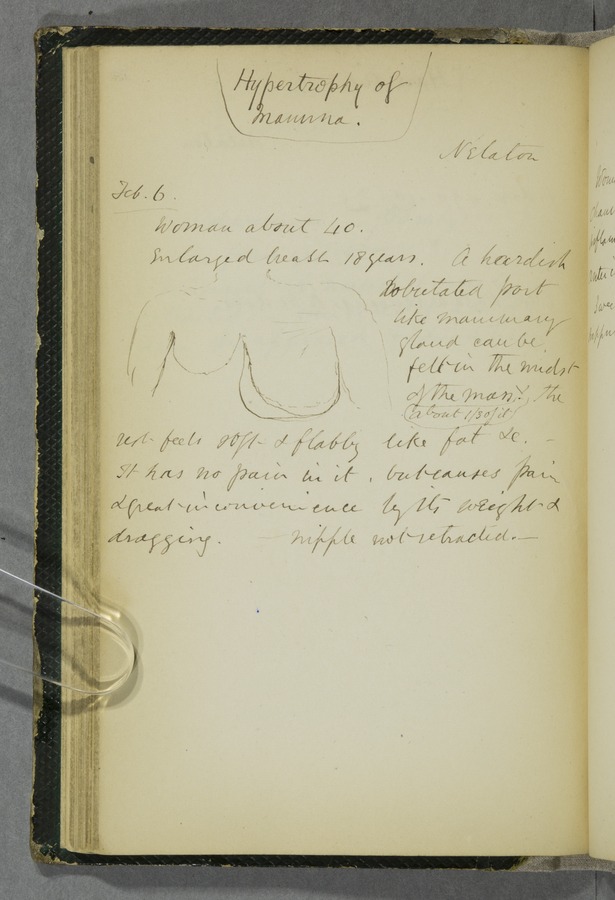 Hypertrophy of
Mamma.
Nelaton
Feb. 6.
Woman about 40.
Enlarged breast 18 years. A hardish
lobulated part
like mammary
gland can be
felt in the midst
of the mass, the
(about 1/30/it)
rest feels soft & flabby like fat &c. –
It has no pain in it, but causes pain
& great inconvenience by its weight &
dragging. – nipple not retracted. –